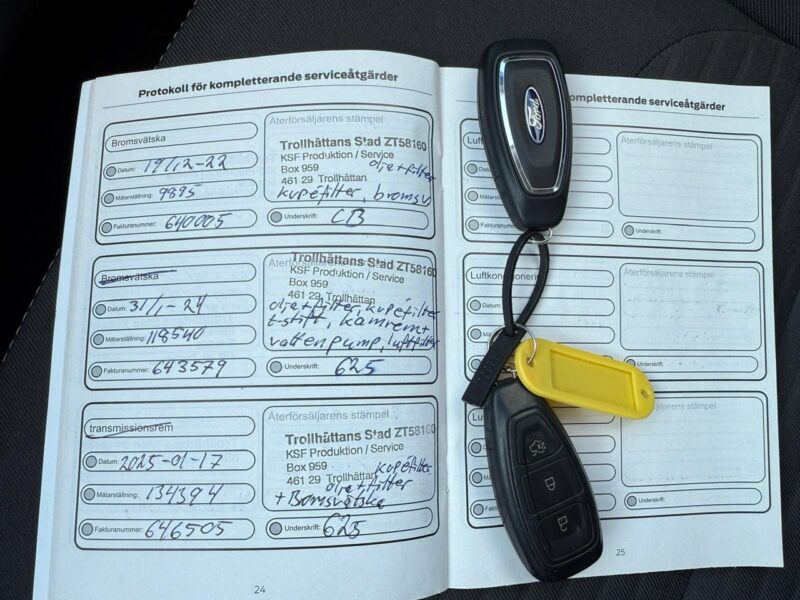 Protokoll för kompletterande serviceåtgärder
Bromsvätska
Datum: 19/12-22
Mätarställning: 9895
Fakturanummer: 640005
Återförsäljarens stämpel
Trollhättans Stad ZT58160
KSF Produktion / Service
Box 959
olja+filter
461 29 Trollhättan
kupéfilter, bromsv
Underskrift: CB
Bromsvätska
Datum: 31/1-24
Mätarställning: 118540
Fakturanummer: 643579
Återförsäljarens stämpel
Trollhättans Stad ZT58160
KSF Produktion / Service
Box 959
461 29 Trollhättan
olja+filter, kupéfilter
t-stift, kamrem+
vattenpump, luftfilter
Underskrift: 625
transmissionsrem
Datum: 2025-01-17
Mätarställning: 134394
Fakturanummer: 646505
Återförsäljarens stämpel
Trollhättans Stad ZT58160
KSF Produktion / Service
Box 959
kupéfilter
461 29 Trollhättan
olja+filter
+ Bromsvätska
Underskrift: 625
24
kompletterande serviceåtgärder
Datum:
Mätarställning:
Återförsäljarens stämpel
Underskrift:
Datum:
Återförsäljarens stämpel
Underskrift:
Återförsäljarens stämpel
Underskrift:
25
Ford